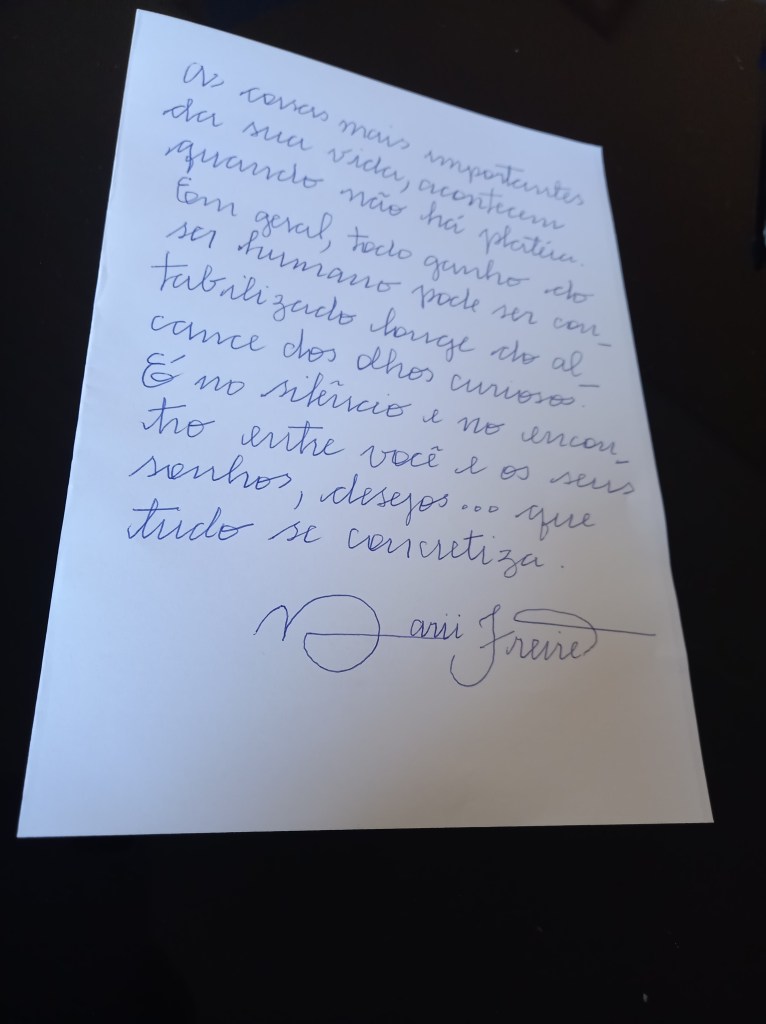 As coisas mais importantes
da sua vida, acontecem
quando não há platéia.
Em geral, todo ganho do
ser humano pode ser con_
tabilizado longe do al_
cance dos olhos curiosos.
É no silêncio e no encon_
tro entre você e os seus
sonhos, desejos... que
tudo se concretiza.
Darii Freire